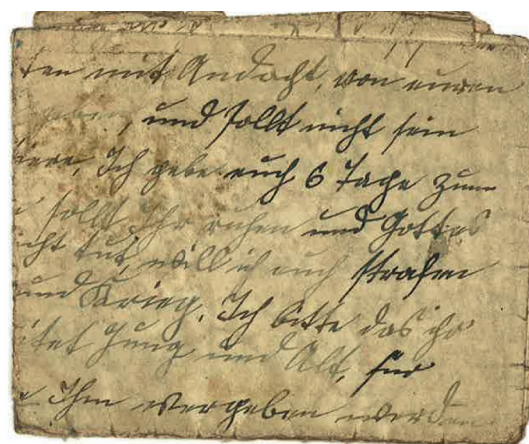 ten mit Andacht, von euren
und sollt nicht sein
Ich gebe euch 6 Tage zum
sollt Ihr ruhen und Gottes
icht tut, will ich euch strafen
und Krieg. Ich bitte das ihr
Jung und Alt, für
Ihm vergeben werden